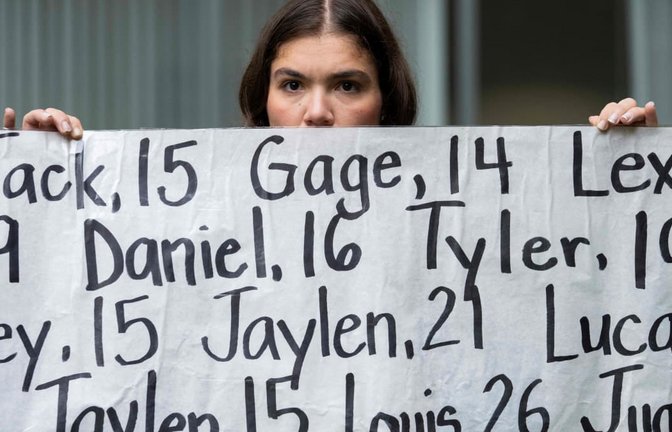 Jack, 15 Gage, 14 Lex
9 Daniel, 16 Tyler, 1
ey, 15 Jaylen, 21 Luca
Jaylen 15 Louis 26 Ju